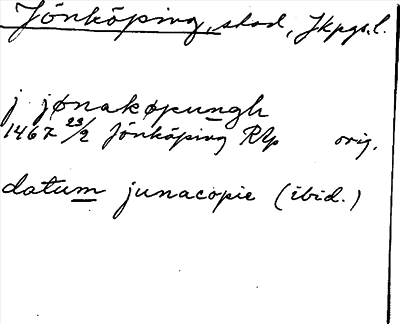 Jönköping, stad, Jkpgs.l.
j jønakøpungh
1467 23/2 Jönköping RAp orig.
datum junacopie (ibid.)